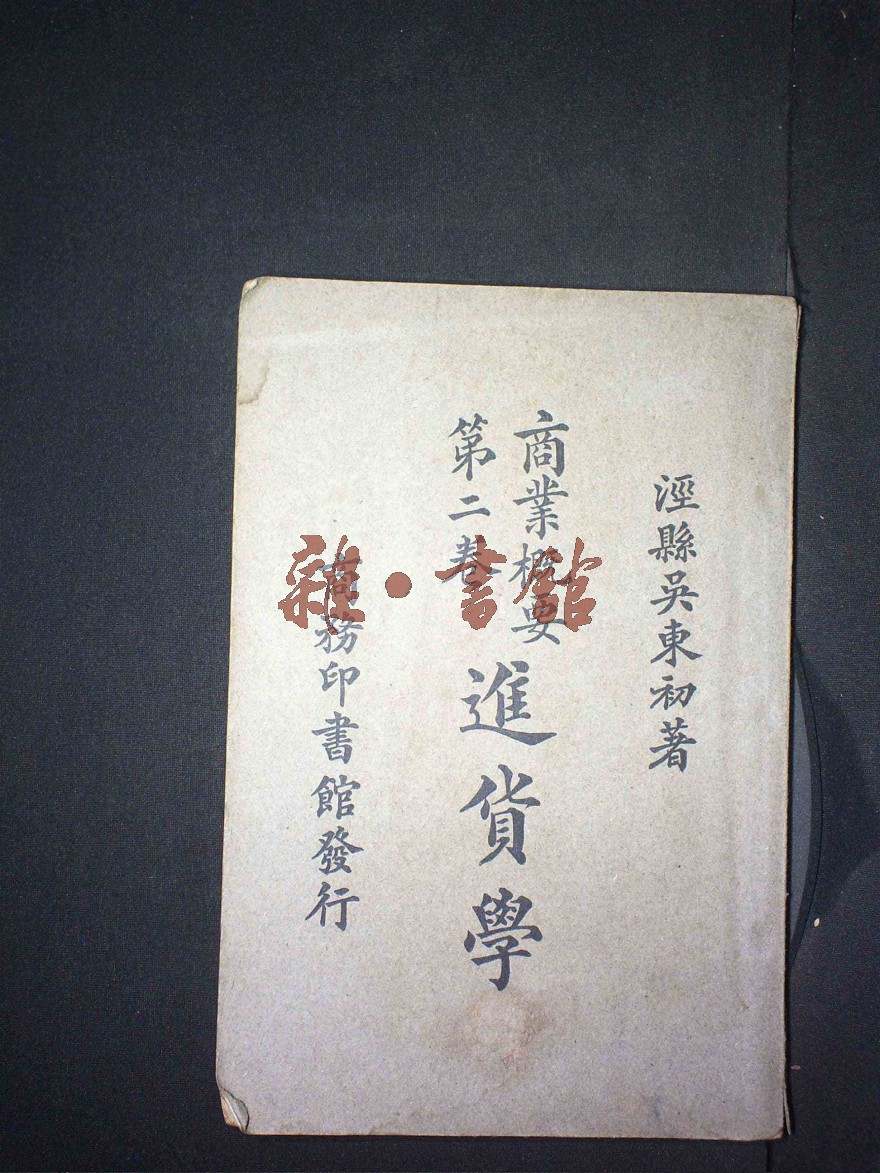 涇縣吳東初著
商業概要
第二卷
進貨學
商務印書館發行
雜·書館